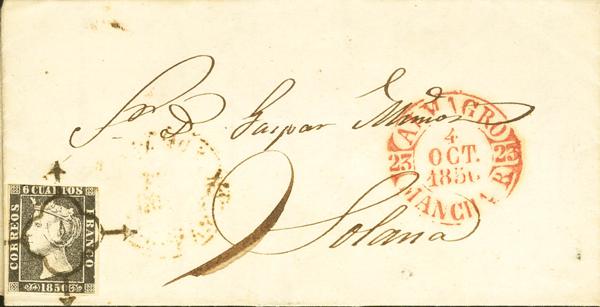 Sr. D. Gaspar Muñoz
Solana
ALMAGRO
4
OCT.
1850
23 23
MANCHA B.
6 CUARTOS
CORREOS
FRANCO
1850